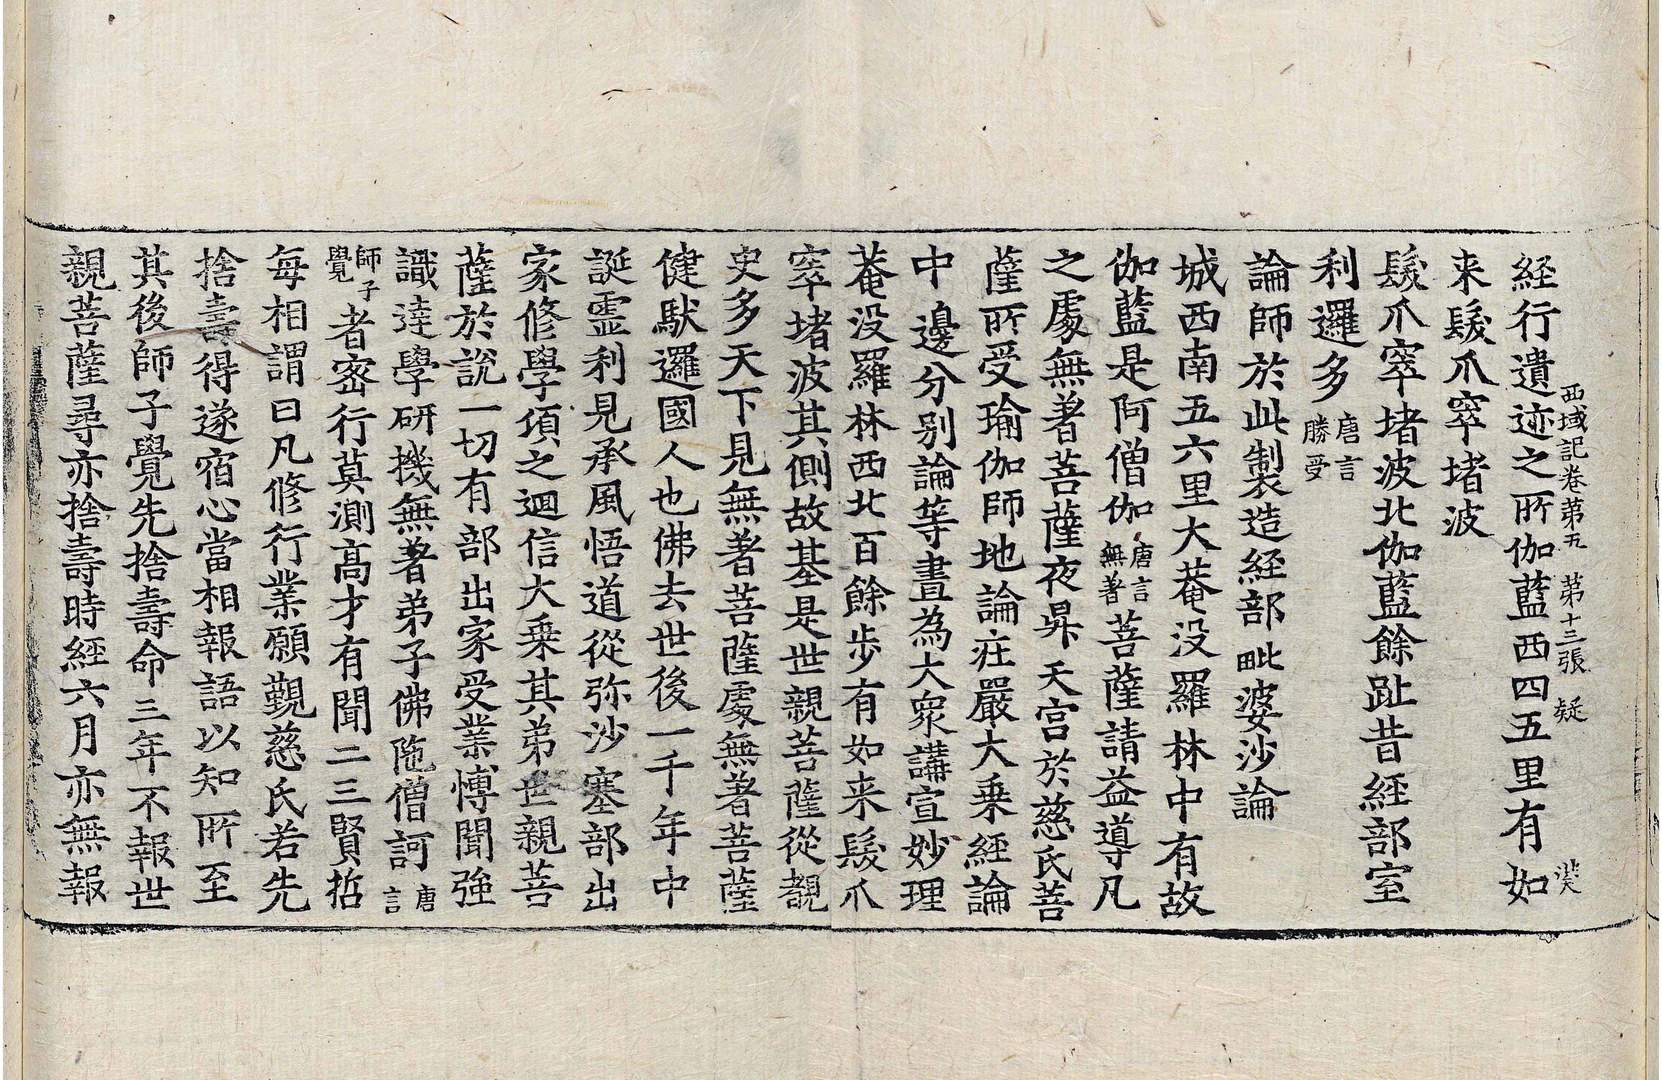 西域記卷第五 第十三張 疑
経行遺迹之所伽藍西四五里有如
来髮爪窣堵波
髮爪窣堵波北伽藍餘趾昔経部室
利邏多唐言勝受
論師於此製造経部毗婆沙論
城西南五六里大菴没羅林中有故
伽藍是阿僧伽唐言無著菩薩請益導凡
之處無著菩薩夜昇天宫於慈氏菩
薩所受瑜伽師地論庄嚴大乗経論
中邊分别論等晝為大衆講宣妙理
菴没羅林西北百餘步有如来髮爪
窣堵波其側故基是世親菩薩從覩
史多天下見無著菩薩處無著菩薩
健馱邏國人也佛去世後一千年中
誕靈利見承風悟道從弥沙塞部出
家修學頃之迴信大乗其弟世親菩
薩於説一切有部出家受業愽聞強
識逹學研機無著弟子佛陁僧訶唐言
師子覺者宻行莫測高才有聞二三賢哲
每相謂曰凡修行業願覲慈氏若先
捨壽得遂宿心當相報語以知所至
其後師子覺先捨壽命三年不報世
親菩薩尋亦捨壽時經六月亦無報